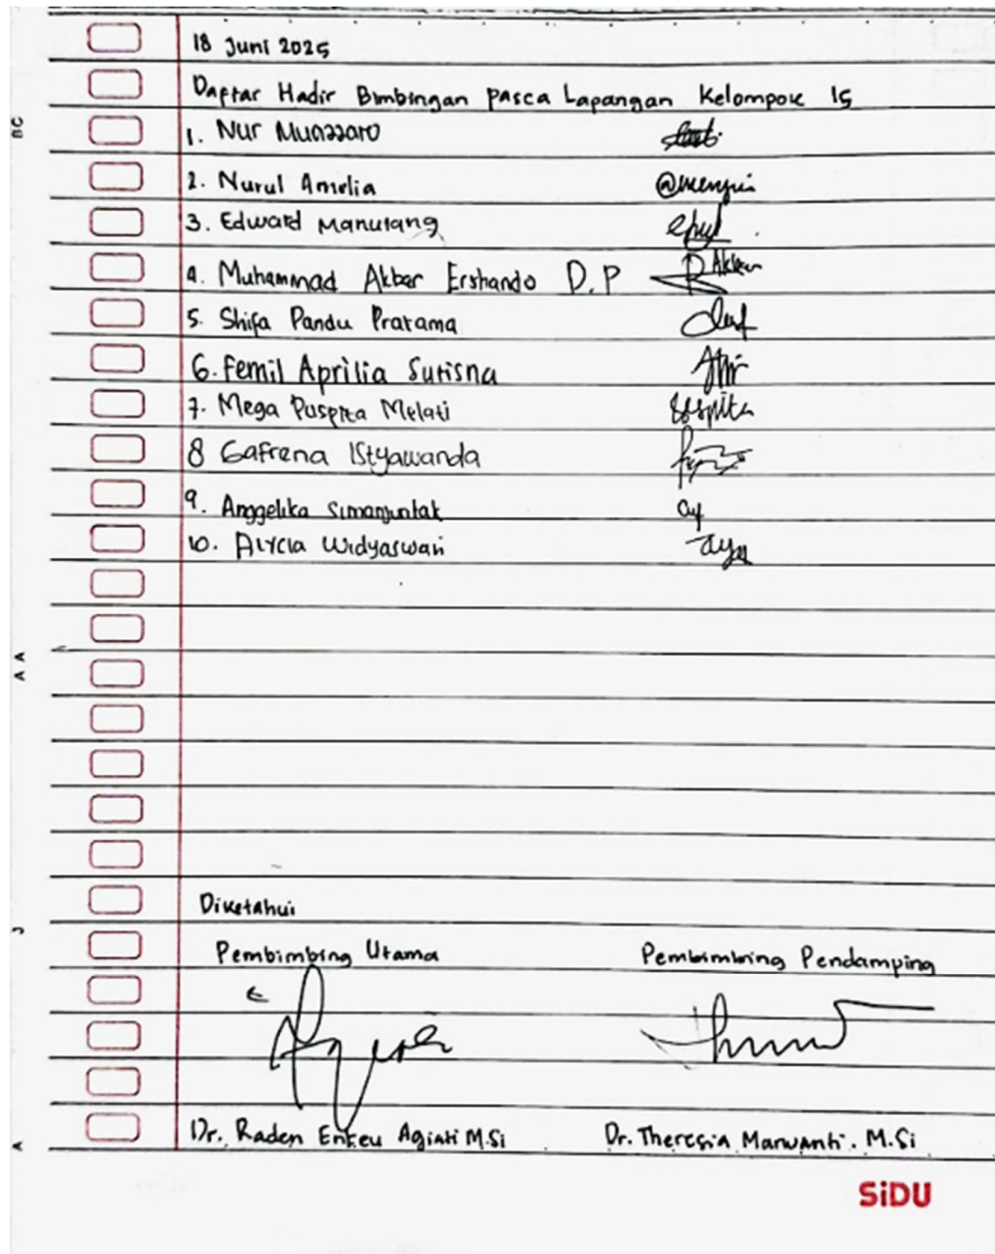 18 Juni 2025
Daftar Hadir Bimbingan Pasca Lapangan Kelompok 15
1. Nur Munazzaro
2. Nurul Amelia
@menyui
3. Edward Manutang
4. Muhammad Akbar Ershando D.P
Akbar
5. Shifa Pandu Pratama
6. Femil Aprilia Sutisna
7. Mega Puspita Melati
8 Gafrena Istyawanda
9. Anggelika Simanjuntak
10. Alycia Widyaswari
Diketahui
Pembimbing Utama Pembimbing Pendamping
Dr. Raden Enkeu Agiati M.Si Dr. Theresia Marwanti. M.Si
SiDU
BC
A A
J
A